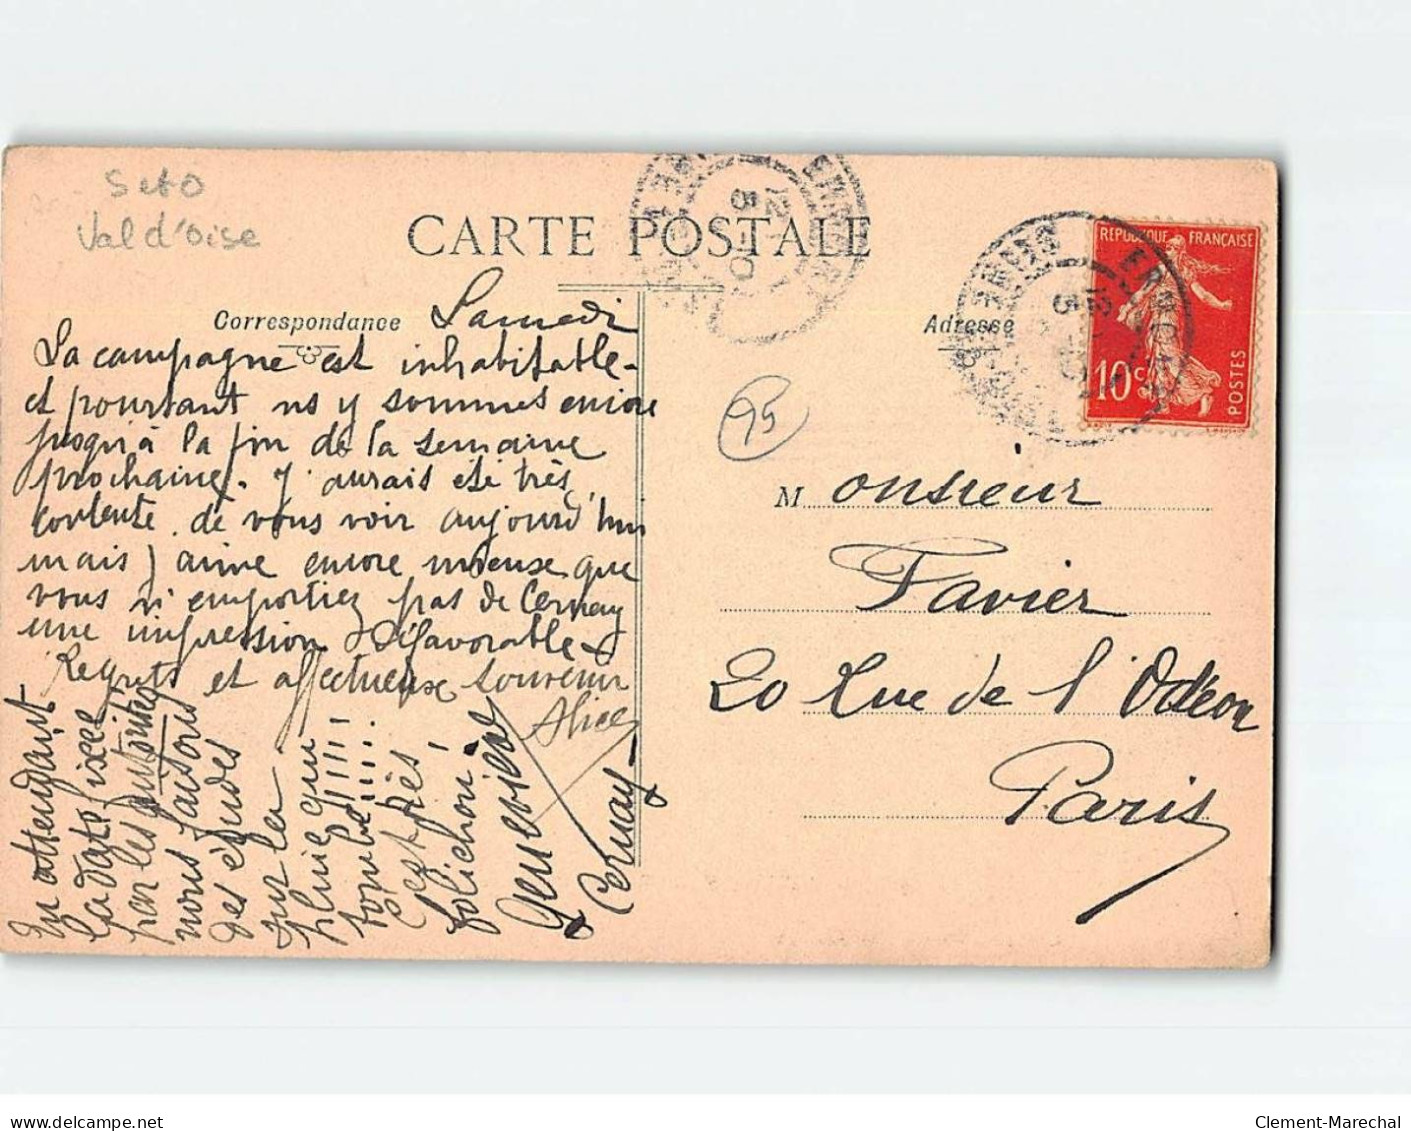 S et O
Val d'Oise
CARTE POSTALE
Correspondance
Samedi
La campagne est inhabitable -
et pourtant ns y sommes encore
jusqu'à la fin de la semaine
prochaine. J'aurais été très
contente de vous voir aujourd'hui
mais j'aime encore mieux que
vous n'emportiez pas de Cernay
une impression défavorable -
Regrets et affectueux souvenir
Alice
En attendant
la date fixée
par les autorités
nous faisons
des études
sur la
pluie qui
tombe !!!!!!
C'est très
folichon !
Geneviève
Cernay
95
Adresse
REPUBLIQUE FRANCAISE
10c
POSTES
ERMONT
SEINE ET OISE
12
5
Monsieur
Favier
20 Rue de l'Odéon
Paris
Clement-Marechal